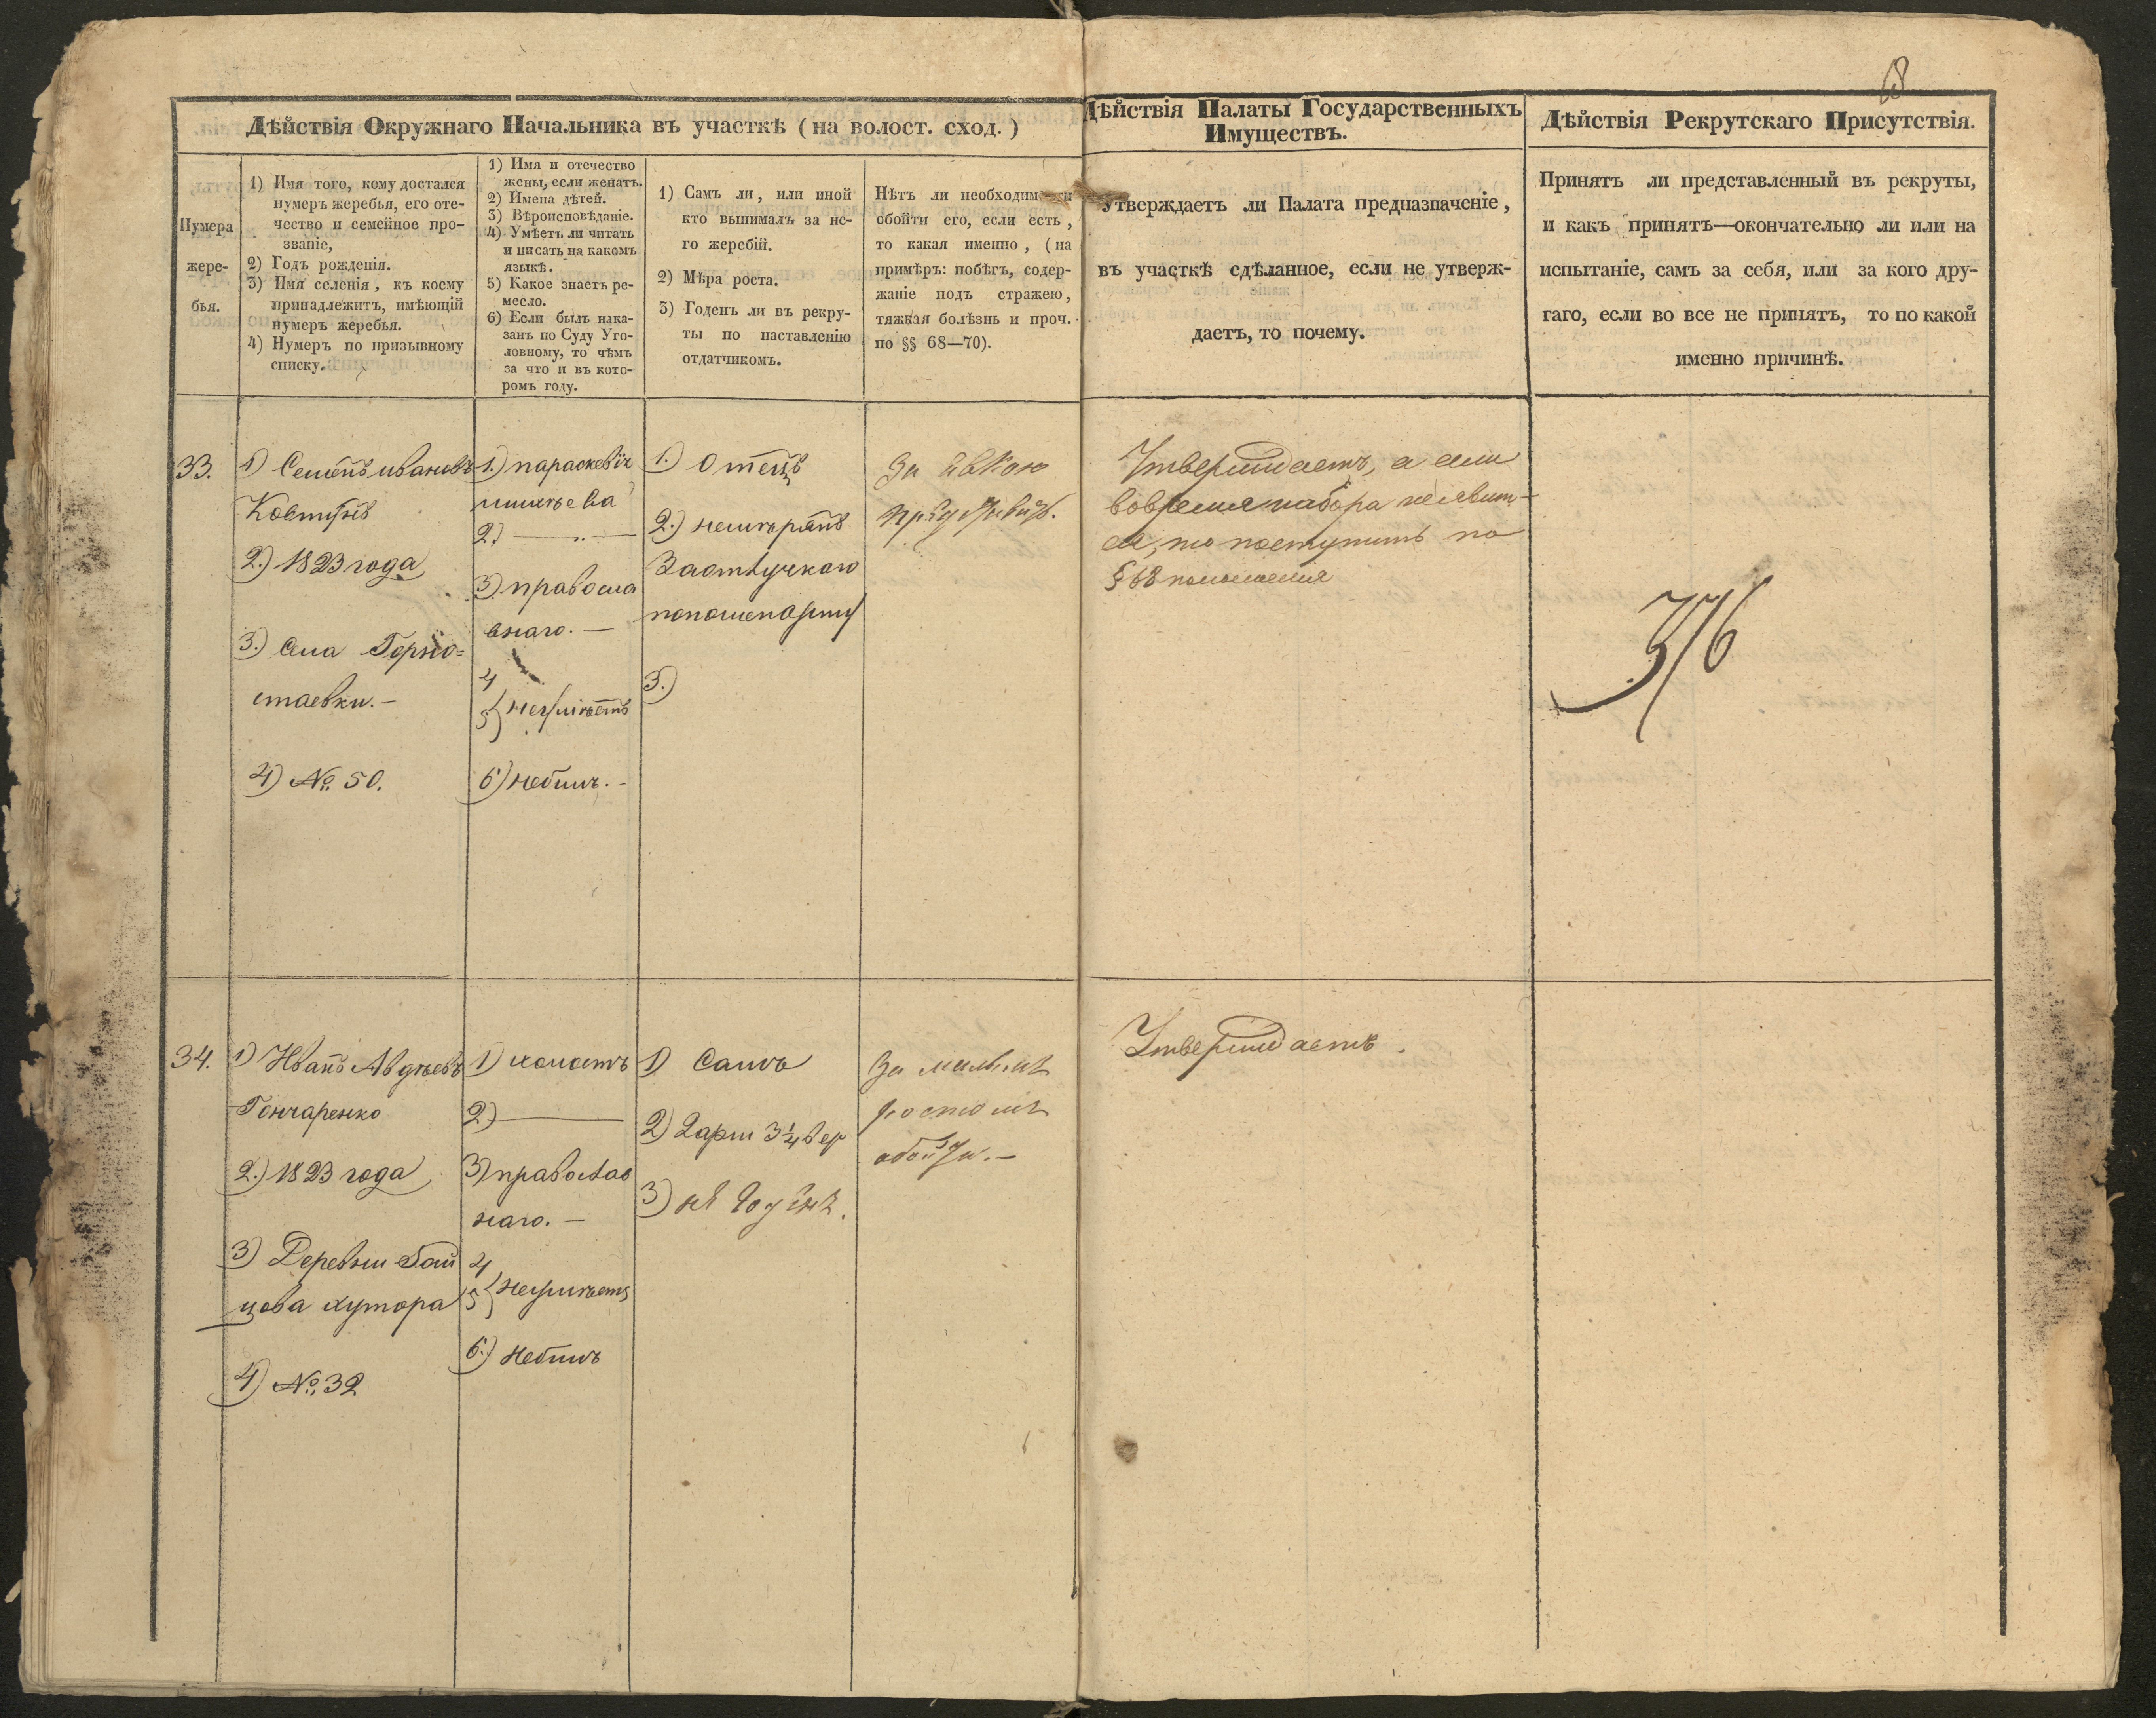 Дѣйствія Окружнаго Начальника въ участкѣ (на волост. сход.)
Нумера
жере-
бья.
1) Имя того, кому достался
нумеръ жеребья, его оте-
чество и семейное про-
званіе,
2) Годъ рожденія.
3) Имя селенія, къ коему
принадлежитъ, имѣющій
нумеръ жеребья.
4) Нумеръ по призывному
списку.
1) Имя и отечество
жены, если женатъ.
2) Имена дѣтей.
3) Вѣроисповѣданіе.
4) Умѣетъ ли читать
и писать на какомъ
языкѣ.
5) Какое знаетъ ре-
месло.
6) Если былъ нака-
занъ по Суду Уго-
ловному, то чѣмъ
за что и въ кото-
ромъ году.
1) Самъ ли, или иной
кто вынималъ за не-
го жеребій.
2) Мѣра роста.
3) Годенъ ли въ рекру-
ты по наставленію
отдатчикомъ.
Нѣтъ ли необходимости
обойти его, если есть,
то какая именно, (на
примѣръ: побѣгъ, содер-
жаніе подъ стражею,
тяжкая болѣзнь и проч.
по §§ 68—70).
33.
1) Семенъ ивановъ
Ковтунъ
2.) 1823 года
3.) Села Горно=
стаевки.—
4) № 50.
1.) параскевiя
2.) —„—
3) правосла
внаго.—
4
5} неумѣетъ
6) небылъ.—
1.) Отецъ
2.) немѣрянъ
3.)
За
34.
1) Иванъ Авдѣевъ
Гончаренко
2.) 1823 года
3) Деревни
цова хутора
4) №32
1) холостъ
2) —
3) православ
наго.—
4
5} неумѣетъ
6.) небылъ
1) Самъ
2) 2 арш 3¼ вер
3) не годенъ.
За малымъ
ростомъ
обойти.—
Дѣйствія Палаты Государственныхъ
Имуществъ.
Утверждаетъ ли Палата предназначеніе,
въ участкѣ сдѣланное, если не утверж-
даетъ, то почему.
Утверждаетъ, а если
вовремя набора неявит-
ся, то поступить по
§ 68 положенія
Утверждаетъ.
Дѣйствія Рекрутскаго Присутствія.
Принятъ ли представленный въ рекруты,
и какъ принятъ—окончательно ли или на
испытаніе, самъ за себя, или за кого дру-
гаго, если во все не принятъ, то по какой
именно причинѣ.
376